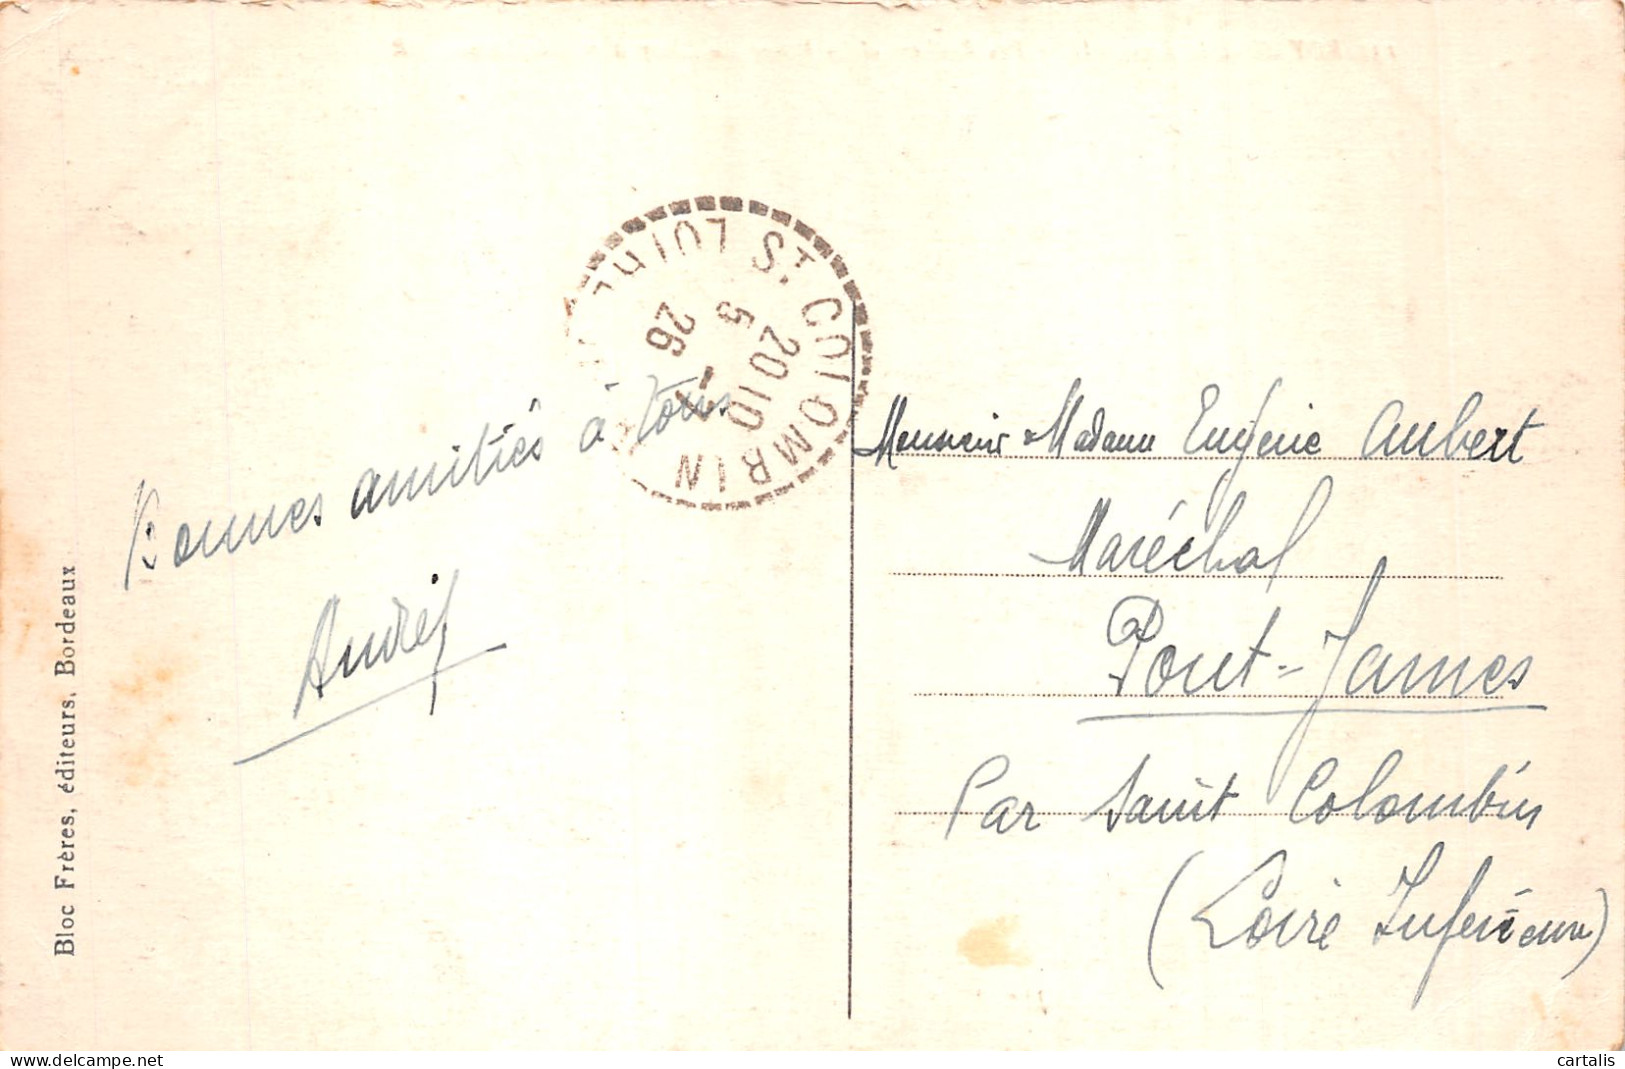 Bonnes amitiés à tous
André
Bloc Frères, éditeurs, Bordeaux
ST. COLOMBIN
20 10
5 -7
26
Monsieur & Madame Eugène Aubert
Maréchal
Pont-James
Par Saint Colombin
(Loire Inférieure)
www.delcampe.net
cartalis